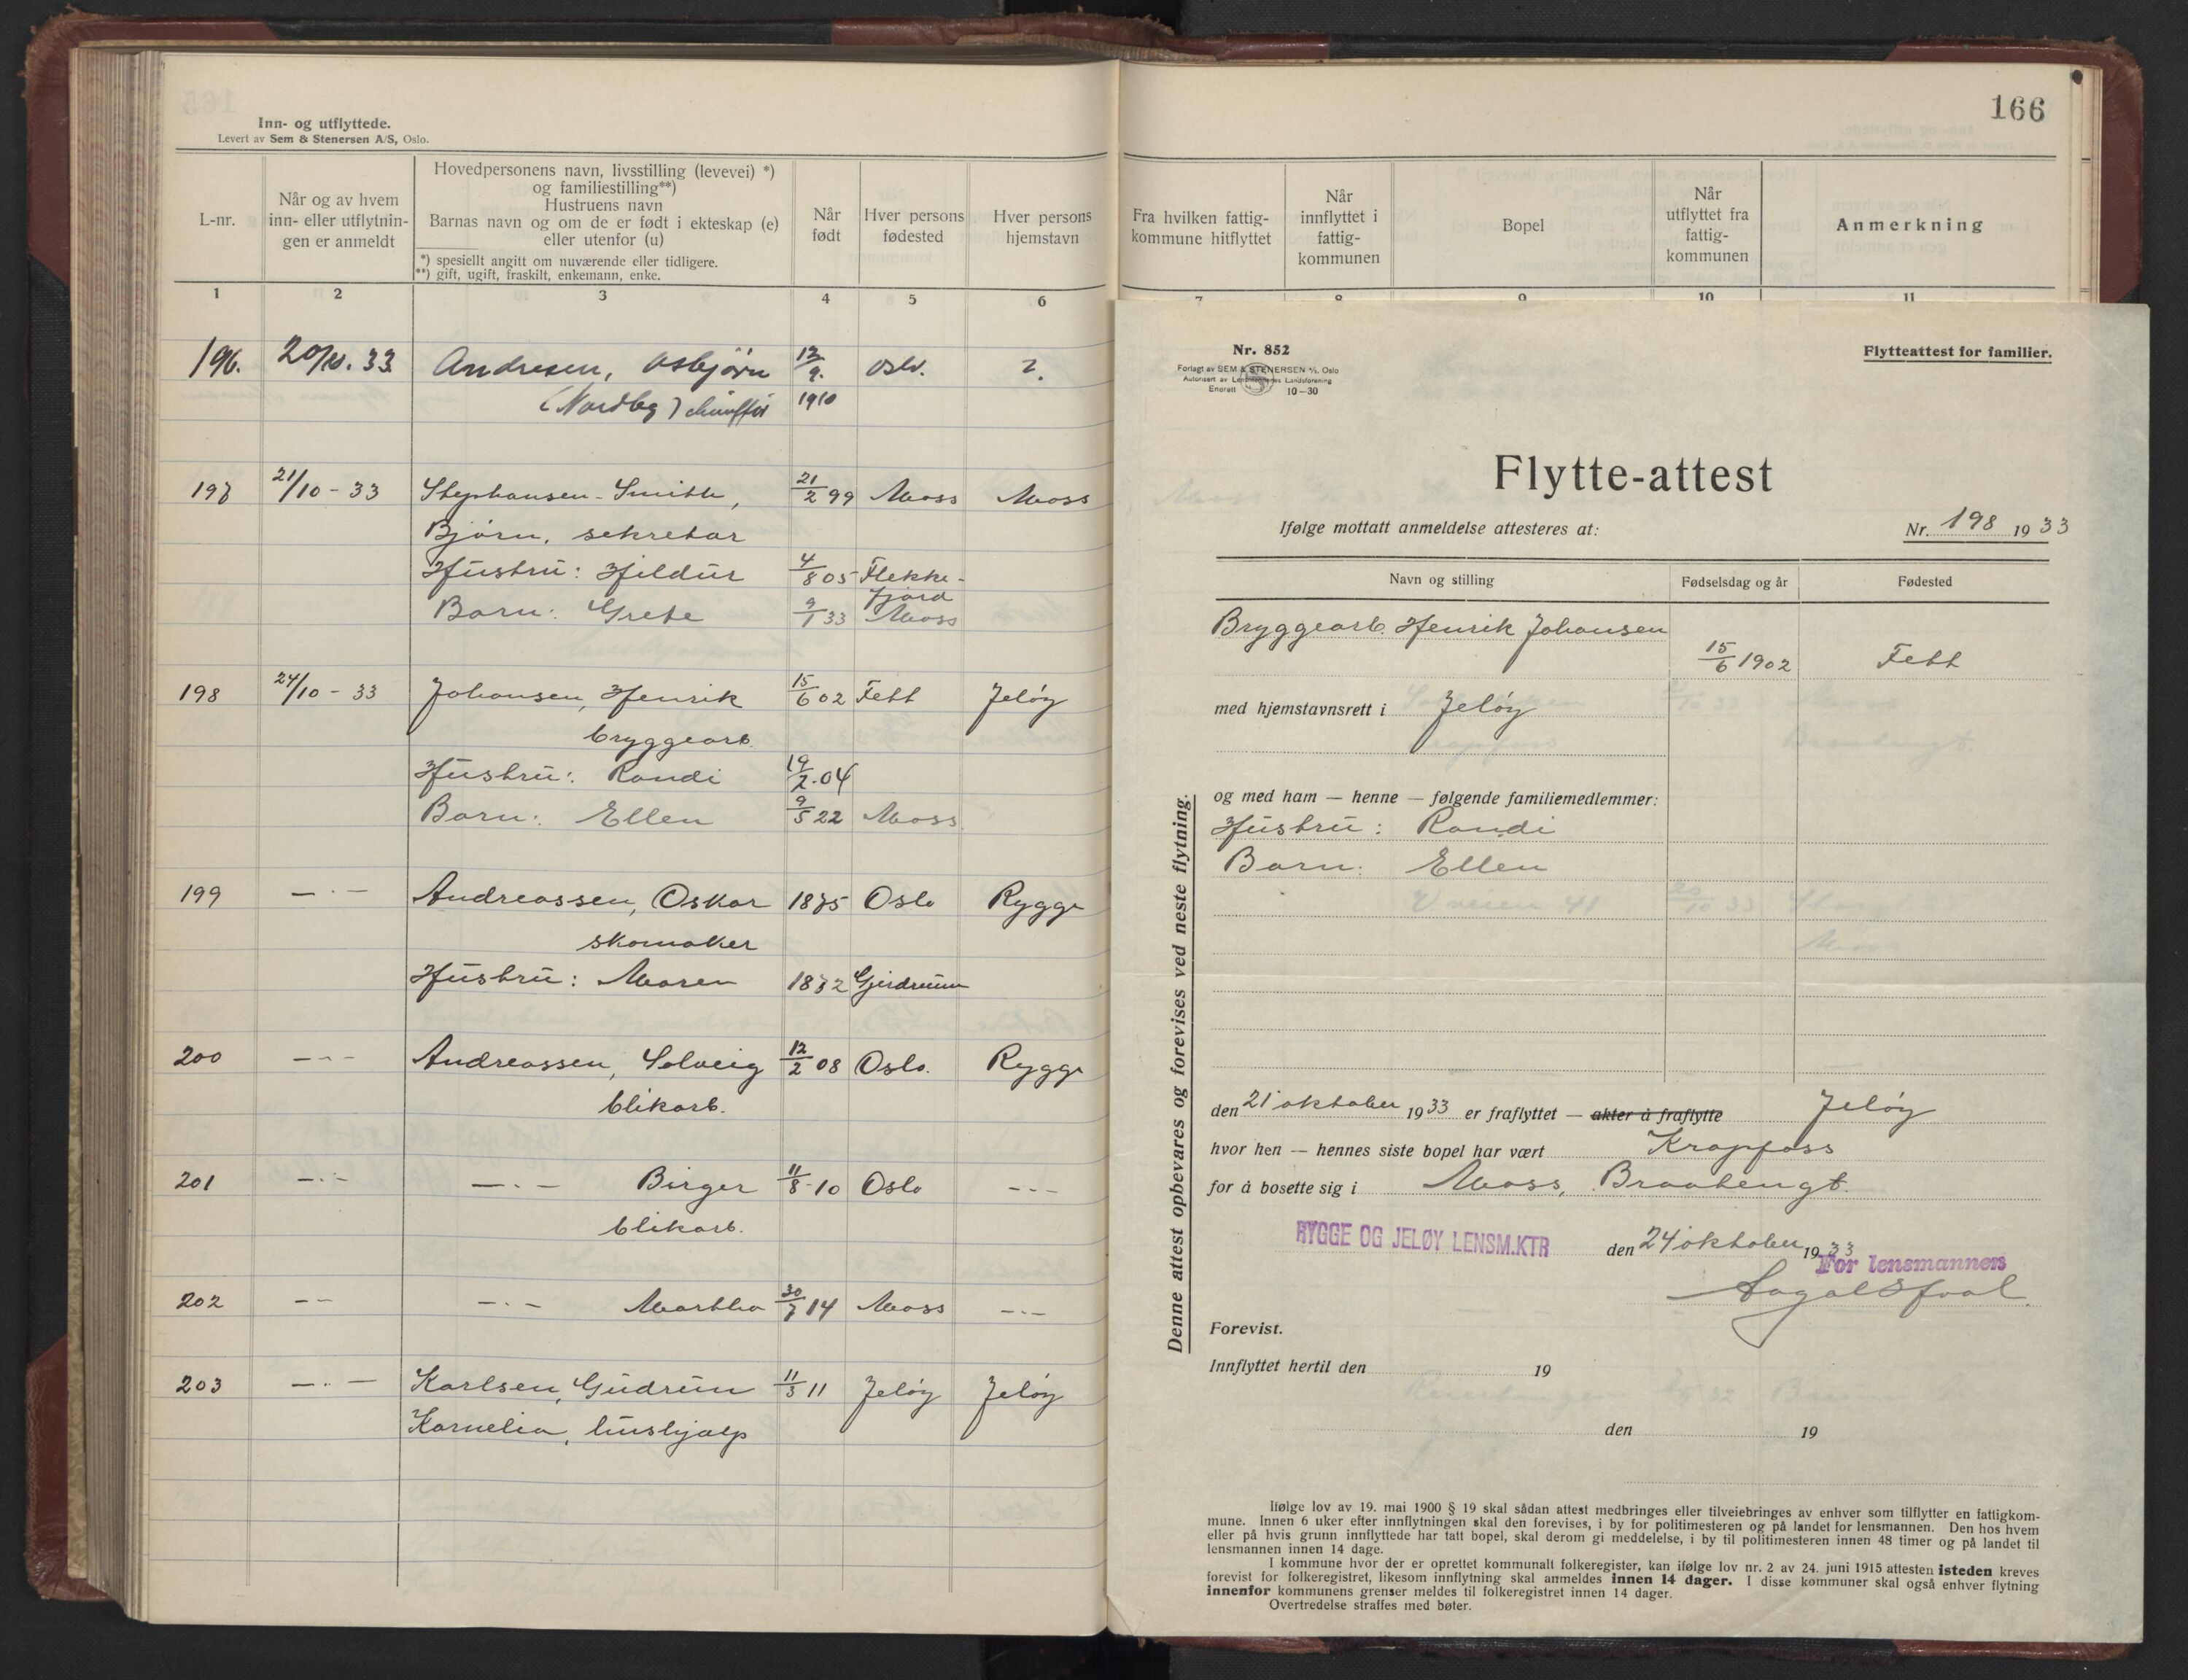 Inn- og utflyttede.
Levert av Sem & Stenersen A/S, Oslo.
L-nr.
Når og av hvem
inn- eller utflytnin-
gen er anmeldt
Hovedpersonens navn, livsstilling (levevei) *)
og familiestilling**)
Hustruens navn
Barnas navn og om de er født i ekteskap (e)
eller utenfor (u)
*) spesiellt angitt om nuværende eller tidligere.
**) gift, ugift, fraskilt, enkemann, enke.
Når
født
Hver persons
fødested
Hver persons
hjemstavn
1 2 3 4 5 6
196. 20/10. 33. Andresen, Asbjørn 12/9. Oslo. ?.
(Nordby) chauffør 1910
197 21/10 - 33 Stephansen-Smith, 21/2 99 Moss Moss
Bjørn, sekretær
Hustru: Hildur 4/8 05 Flekke-
fjord
Barn: Grete 9/1 33 Moss
198 24/10 - 33 Johansen, Henrik 15/6 02 Fett Jeløy
bryggearb.
Hustru: Randi 19/2. 04
Barn: Ellen 9/5 22 Moss.
199 — · — Andreassen, Oskar 1875 Oslo Rygge
skomaker
Hustru: Maren 1872 Gjerdrum
200 - - - Andreassen, Solveig 12/2 08 Oslo. Rygge
blikarb.
201 - · - — · — Birger 11/8 - 10 Oslo - - -
blikarb.
202 - - - · - Martha 30/7 14 Moss - · -
203 — · — Karlsen, Gudrun 11/3 11 Jeløy Jeløy
Kornelia, hushjælp
166
Fra hvilken fattig-
kommune hitflyttet
Når
innflyttet i
fattig-
kommunen
Bopel
Når
utflyttet fra
fattig-
kommunen
Anmerkning
7 8 9 10 11
Nr. 852
Forlagt av SEM & STENERSEN A/S. Oslo
Autorisert av Lensmennenes Landsforening
Enerett 10-30
Flytteattest for familier.
Flytte-attest
Ifølge mottatt anmeldelse attesteres at:
Nr. 198 1933
Navn og stilling Fødselsdag og år Fødested
Bryggearb. Henrik Johansen
15/6 1902 Fett
med hjemstavnsrett i Jeløy
og med ham — henne — følgende familiemedlemmer:
Hustru: Randi
Barn: Ellen
den 21 oktober 1933 er fraflyttet — akter å fraflytte Jeløy
hvor hen — hennes siste bopel har vært Krapfoss
for å bosette sig i Moss, Braatengt.
RYGGE OG JELØY LENSM.KTR
den 24 oktober 1933
For lensmannen
Forevist.
Innflyttet hertil den 19
den 19
Ifølge lov av 19. mai 1900 § 19 skal sådan attest medbringes eller tilveiebringes av enhver som tilflytter en fattigkom-
mune. Innen 6 uker efter innflytningen skal den forevises, i by for politimesteren og på landet for lensmannen. Den hos hvem
eller på hvis grunn innflyttede har tatt bopel, skal derom gi meddelelse, i by til politimesteren innen 48 timer og på landet til
lensmannen innen 14 dage.
I kommune hvor der er oprettet kommunalt folkeregister, kan ifølge lov nr. 2 av 24. juni 1915 attesten isteden kreves
forevist for folkeregistret, likesom innflytning skal anmeldes innen 14 dager. I disse kommuner skal også enhver flytning
innenfor kommunens grenser meldes til folkeregistret innen 14 dager.
Overtredelse straffes med bøter.
Denne attest opbevares og forevises ved neste flytning.